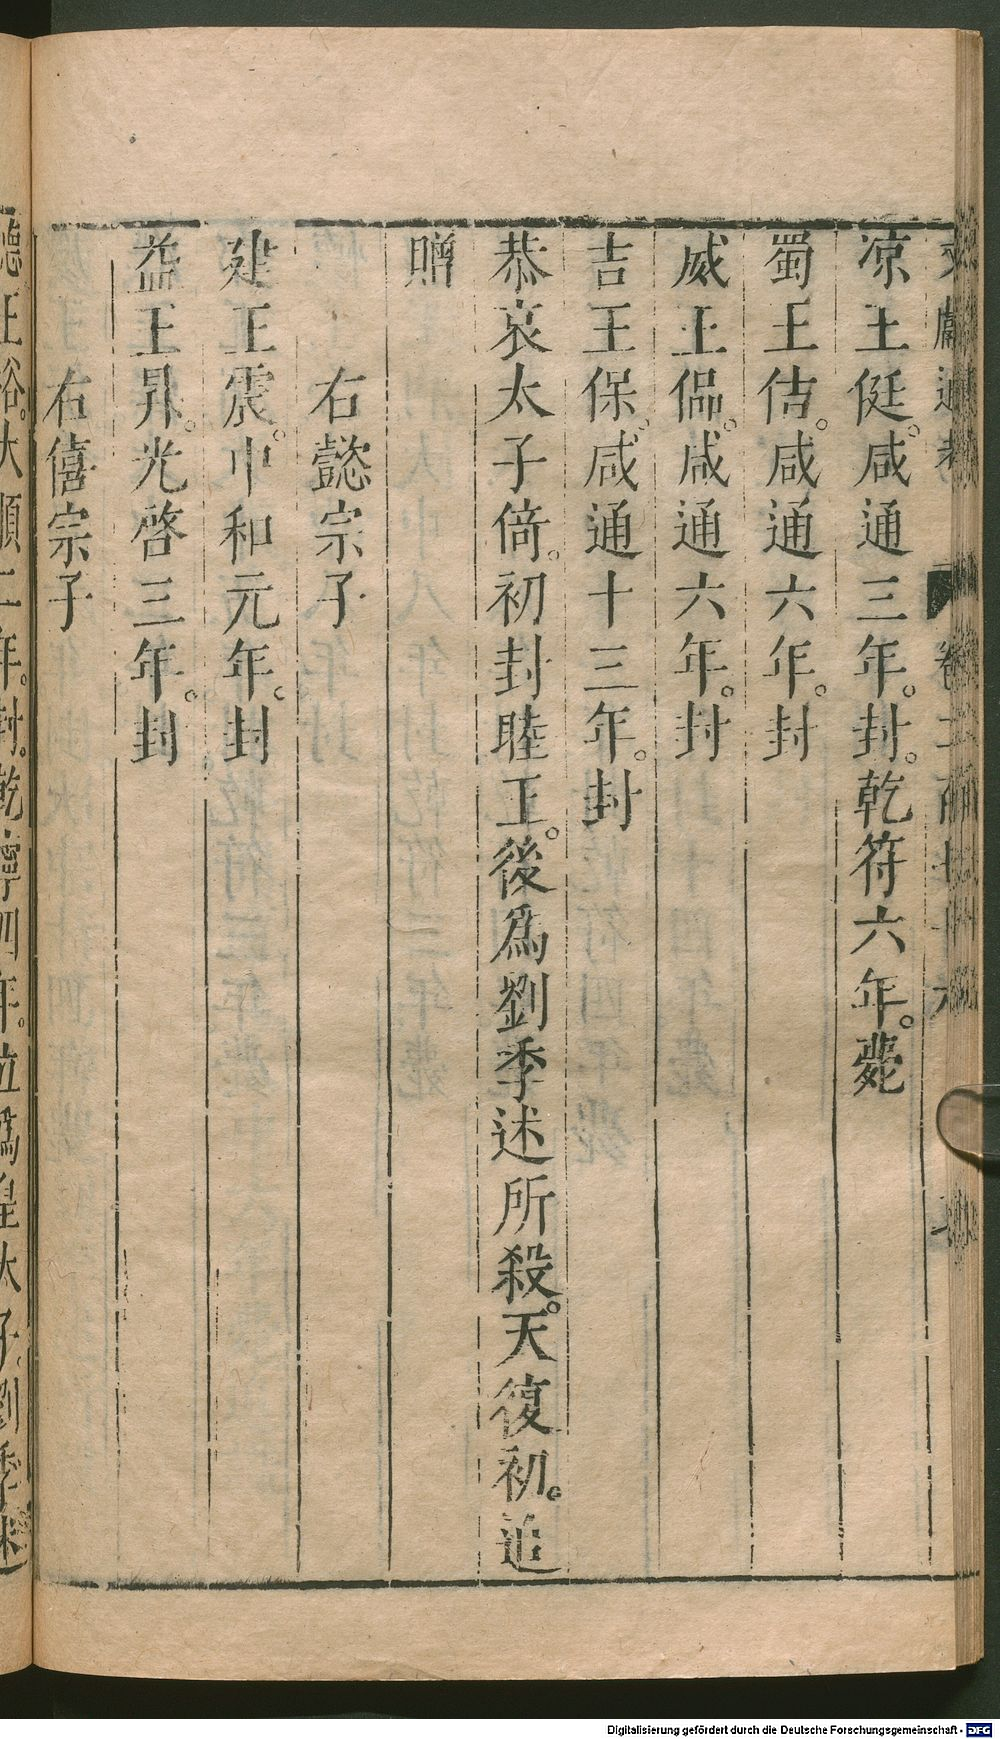 文獻通考 卷二百七十六
凉王侹。咸通三年。封。乾符六年。薨
蜀王佶。咸通六年。封
威王偘。咸通六年。封
吉王保。咸通十三年。封
恭哀太子倚。初封睦王。後爲劉季述所殺。天復初。追
贈
右懿宗子
建王震。中和元年。封
益王昇。光啓三年。封
右僖宗子
德王裕。大順二年。封。乾寧四年。立爲皇太子。劉季述
Digitalisierung gefördert durch die Deutsche Forschungsgemeinschaft - DFG